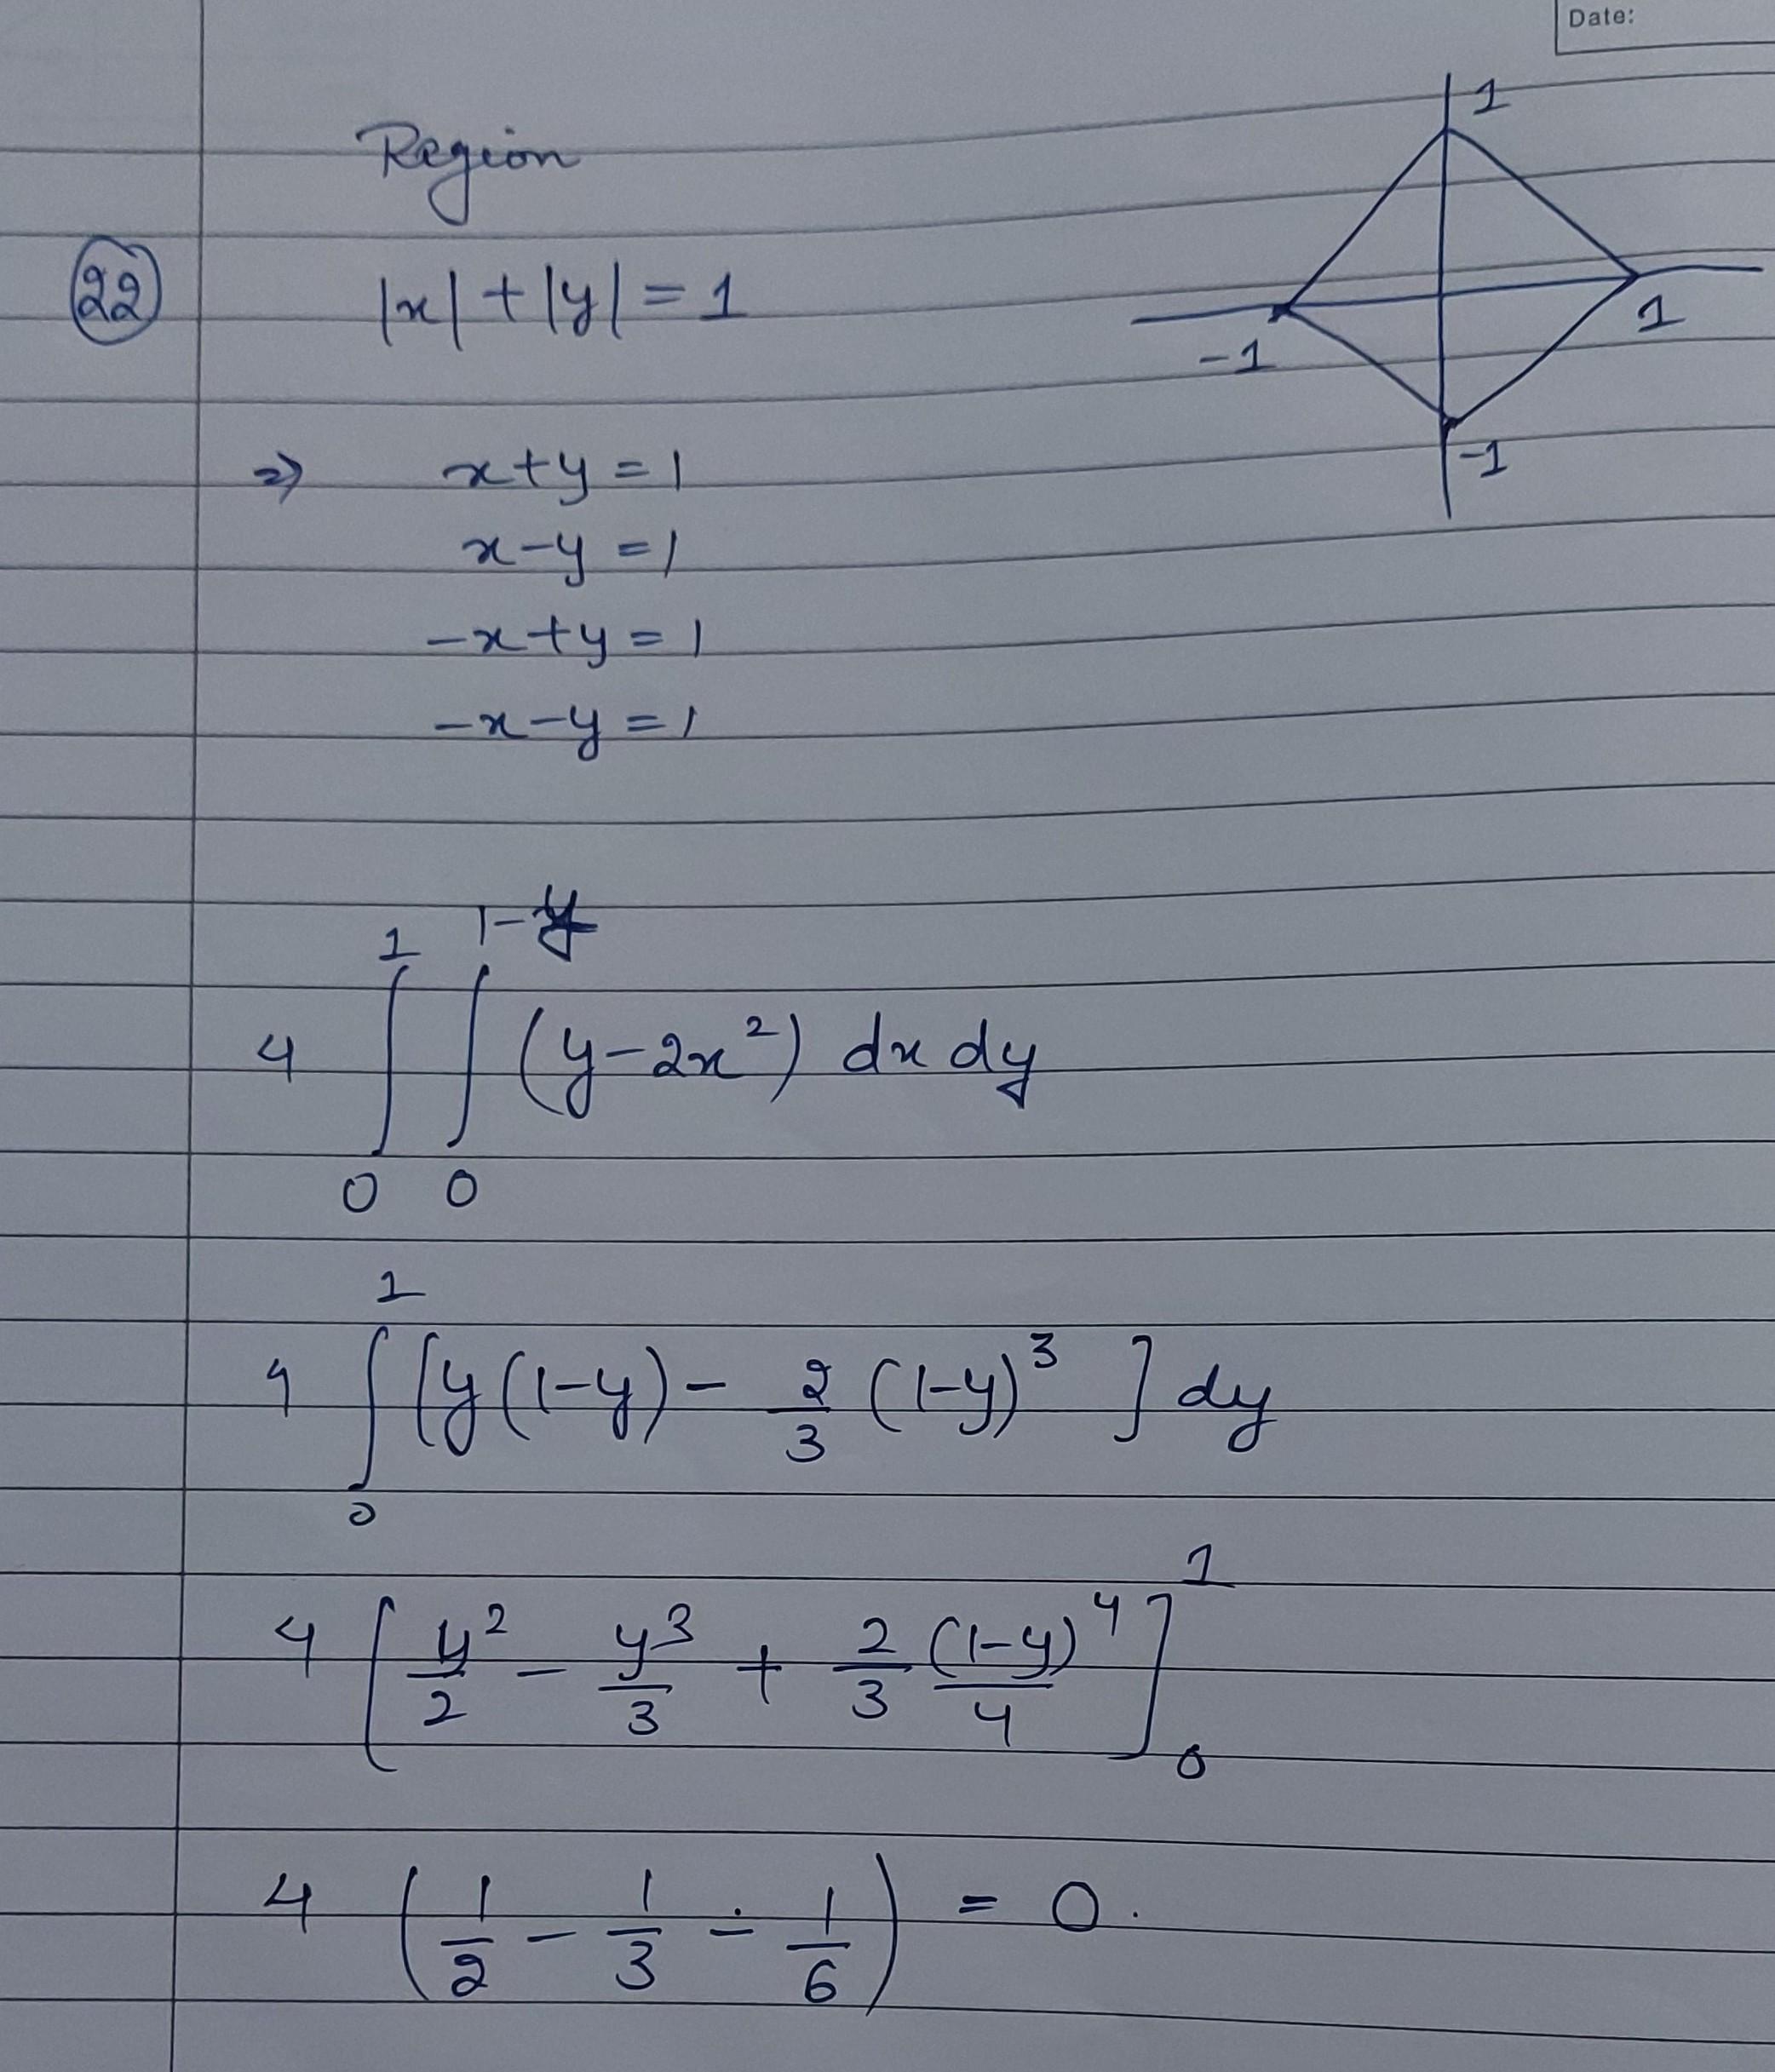 Date:
Region
22
|x| + |y| = 1
1
-1
1
-1
⇒ x+y = 1
x-y = 1
-x+y = 1
-x-y = 1
4 ∫₀¹ ∫₀^(1-y) (y-2x²) dx dy
4 ∫₀¹ [y(1-y) - 2/3 (1-y)³] dy
4 [y²/2 - y³/3 + 2/3 (1-y)⁴/4]₀¹
4 (1/2 - 1/3 - 1/6) = 0.